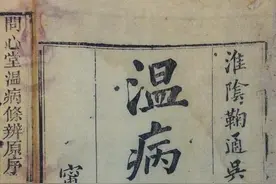 淮陰鞠通吳
温病
問心堂温病條辨原序